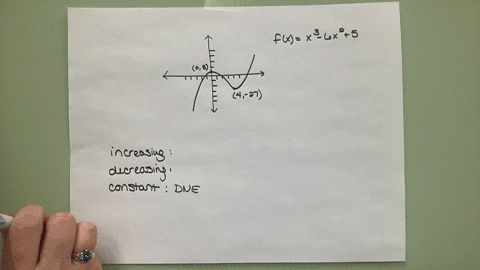 f(x) = x³-6x²+5
(0,5)
(4,-27)
increasing:
decreasing:
constant: DNE